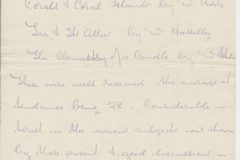 Corals & Coral Islands by W
& The by W
The Chemistry of a Candle by W
These were well received the average at
tendance being 28. Considerable in
terest in the various subjects was shown
by those present & good discussion